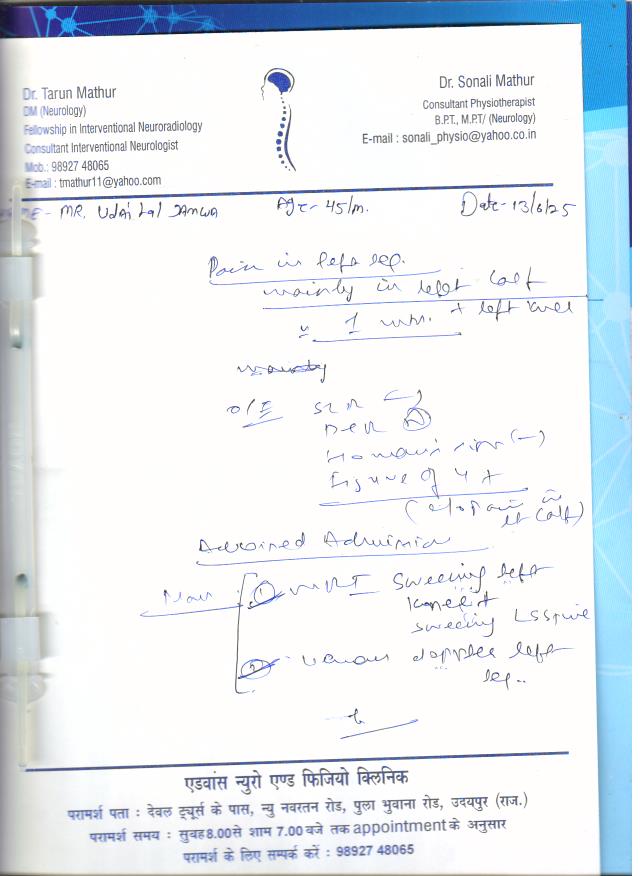 Dr. Tarun Mathur
DM (Neurology)
Fellowship in Interventional Neuroradiology
Consultant Interventional Neurologist
Mob.: 98927 48065
E-mail : tmathur11@yahoo.com
Dr. Sonali Mathur
Consultant Physiotherapist
B.P.T., M.P.T/ (Neurology)
E-mail : sonali_physio@yahoo.co.in
MR. Udai Lal Age- 45/m. Date- 13/6/25
Pain in left leg.
mainly in left calf
1 + left knee
O/E SLR (-)
Homan's sign (-)
Figure of 4 +
(c/o pain in
lt calf)
Advised
Plan ① MRI left
knee +
LSSpine
② venous doppler left
leg..
एडवांस न्युरो एण्ड फिजियो क्लिनिक
परामर्श पता : देवल ट्यूर्स के पास, न्यु नवरतन रोड, पुला भुवाना रोड, उदयपुर (राज.)
परामर्श समय : सुवह 8.00 से शाम 7.00 बजे तक appointment के अनुसार
परामर्श के लिए सम्पर्क करें : 98927 48065